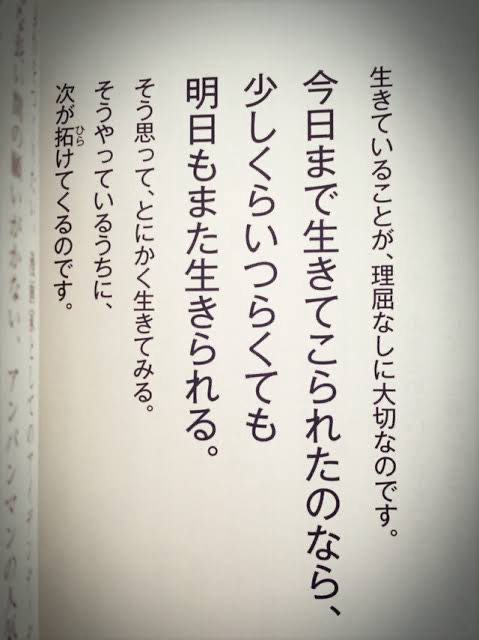 生きていることが、理屈なしに大切なのです。
今日まで生きてこられたのなら、
少しくらいつらくても
明日もまた生きられる。
そう思って、とにかく生きてみる。
そうやっているうちに、
次が拓けてくるのです。
ひら
アンパンマンの人気